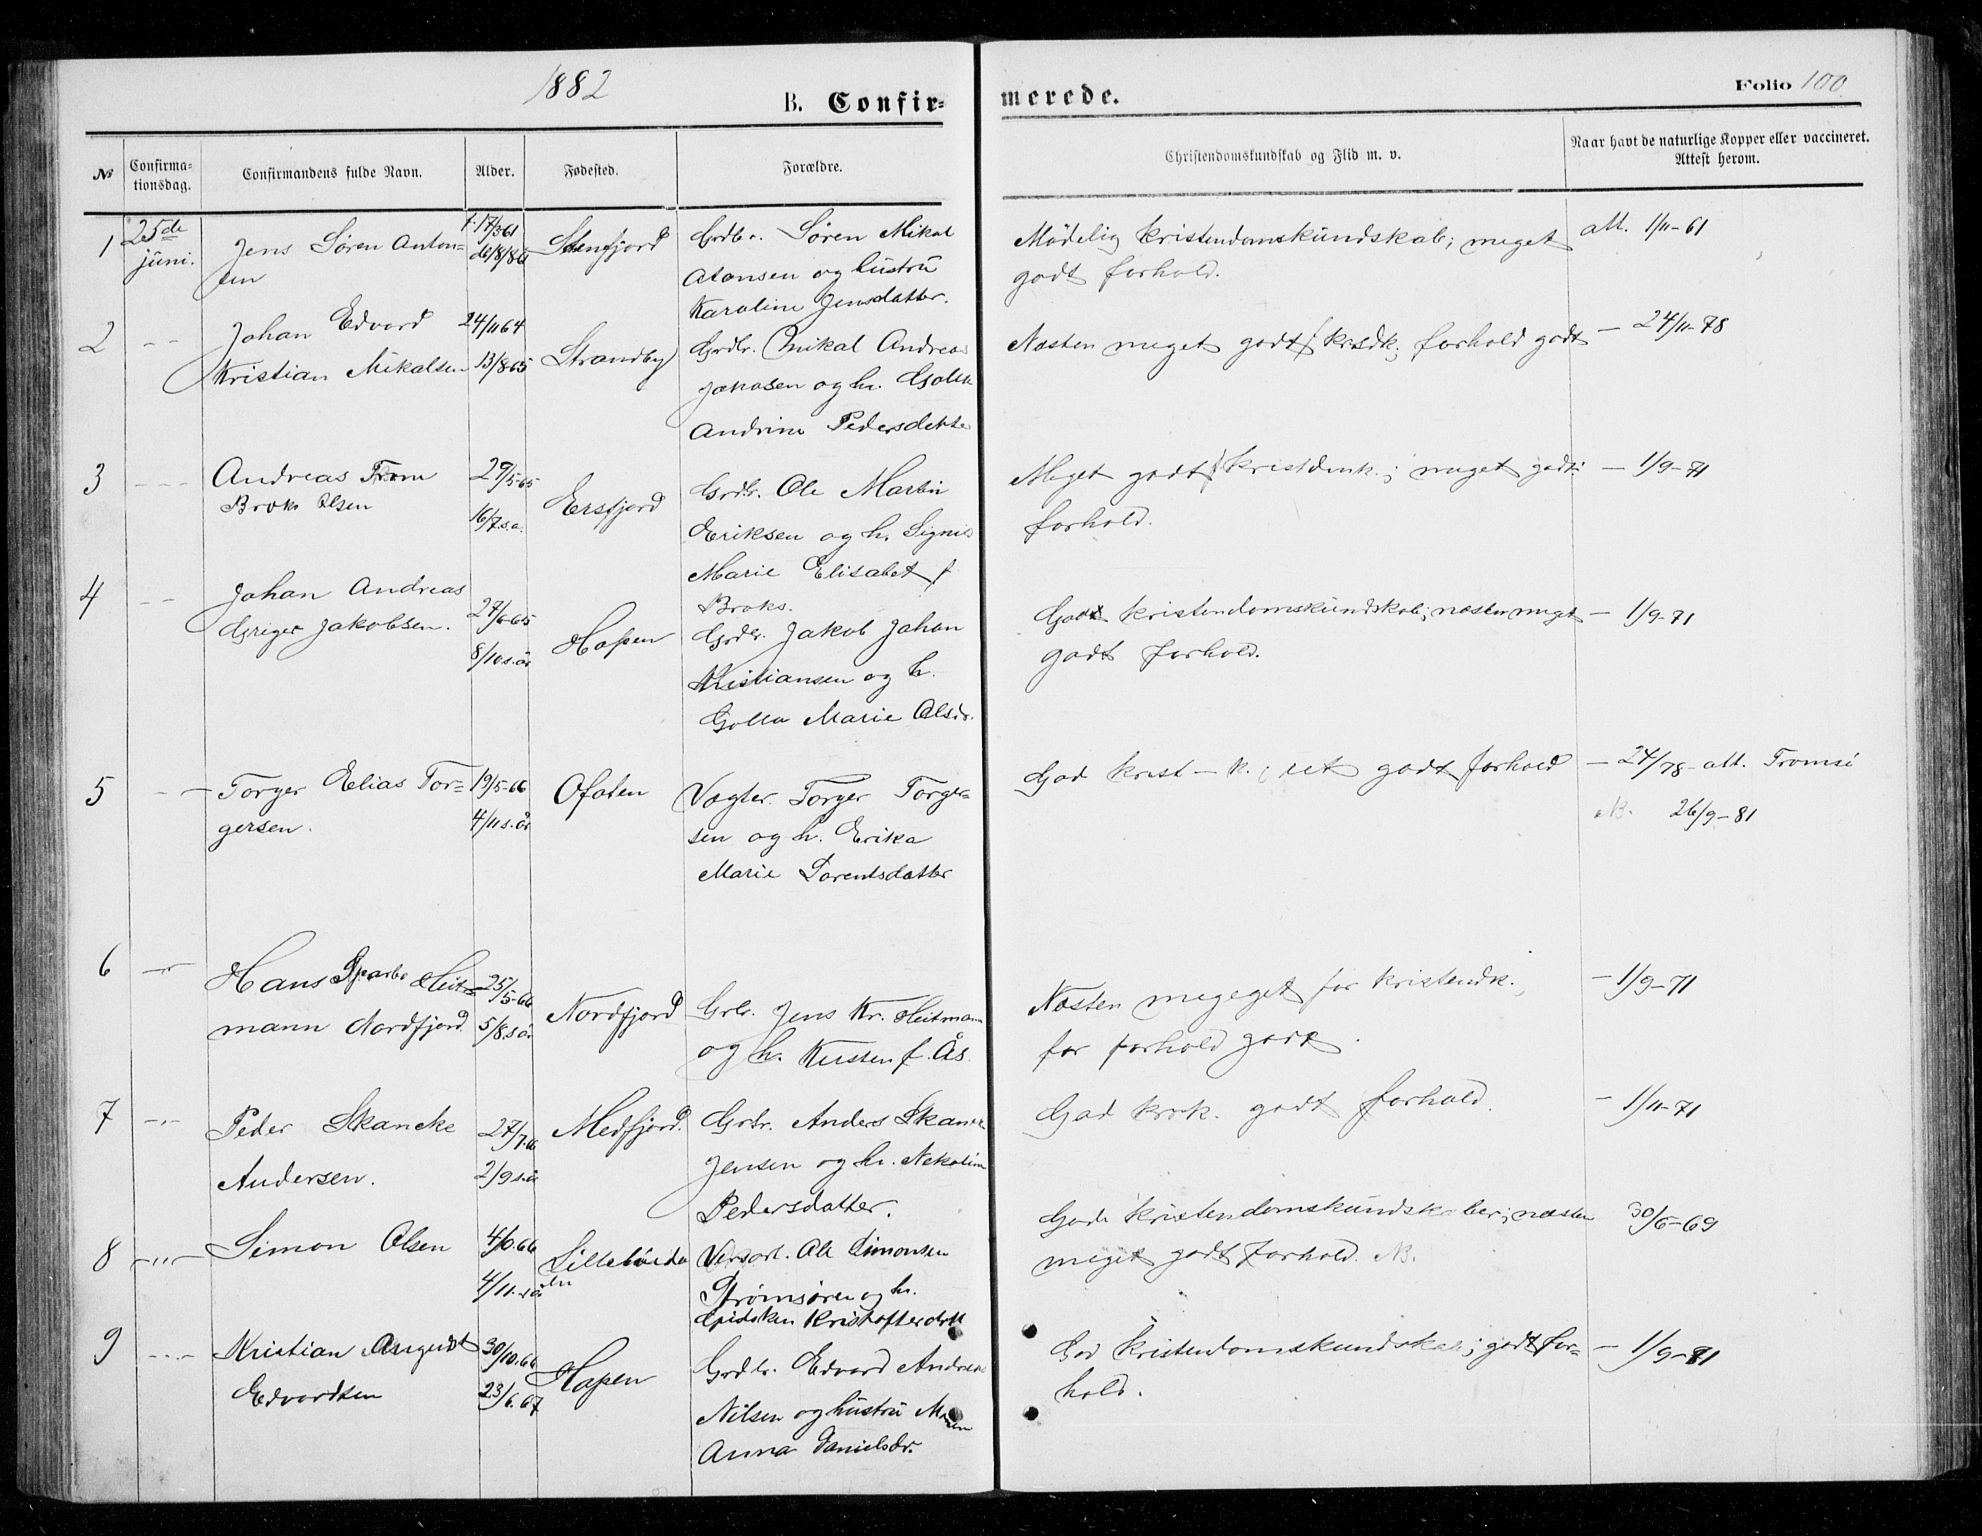 1882
B. Confir-
merede.
Folio 100.
№
Confirma-
tionsdag.
Confirmandens fulde Navn.
Alder.
Fødested.
Forældre.
Christendomskundskab og Flid m. v.
Naar havt de naturlige Kopper eller vaccineret.
Attest herom.
1 25de juni. Jens Søren Anton-
sen
Stenfjord
Grdbr. Søren Mikal
Antonsen og hustru
Karoline Jensdatter.
Mådelig kristendomskundskab; meget
godt forhold.
att. 1/11-61
2 Johan Edvard
Kristian Mikalsen
24/11 64
13/8 65
Strandby
Grdbr. Mikal Andreas
Jakobsen og h.
Andrine Pedersdatte
Næsten meget godt f krsdk; forhold godt
— 24/11-78
3 Andreas From
Broks Olsen
29/5-65
16/7 s.a.
Ersfjord
Grdbr. Ole Martin
Eriksen og h. Signild
Marie Elisabet f
Broks.
Meget godt f kristdmk.; meget godt
forhold.
— 1/9-71
4 Johan Andreas
Griger Jakobsen.
27/6-65
8/10 s. år
Hopen
Grdbr. Jakob Johan
Kristiansen og h.
Golla Marie Olsdr.
Godt kristendomskundskab; næsten meget
godt forhold.
— 1/9-71
5 Torger Elias Tor-
gersen.
19/5-66
4/11 s. år
Ofoten
Vogter Torger Torger-
sen og h. Erika
Marie Lorentsdatter
God krist-k.; ret godt forhold
— 24/78- att. Tromsö
NB. 26/9-81
6 Hans Sparbo Heit-
mann Nordfjord
25/5-66
5/8 s år
Nordfjord
Grbr. Jens Kr. Heitmann
og h. Kirsten f. Ås.
Næsten megeget for kristendk.;
for forhold godt.
— 1/9-71
7 Peder Skancke
Andersen.
27/7-66
2/9 s. år
Medfjord.
Grbr. Anders Skancke
Jensen og h. Nekoline
Pedersdatter.
God krsk. godt forhold.
— 1/11-71
8 Simon Olsen
4/6.66
4/11. s år
Grdbr. Ole Simonsen
Strømsøren og h.
Kristofferdatt
Gode kristendomskundskaber; næsten
meget godt forhold. NB.
30/6-69
9 Kristian August
Edvardsen
30/10.66
23/6.67
Hopen
Grdbr. Edvard Andreas
Nilsen og hustru Maren
Anna Danielsdr.
God kristendomskundskab; godt for-
hold.
— 1/9-71